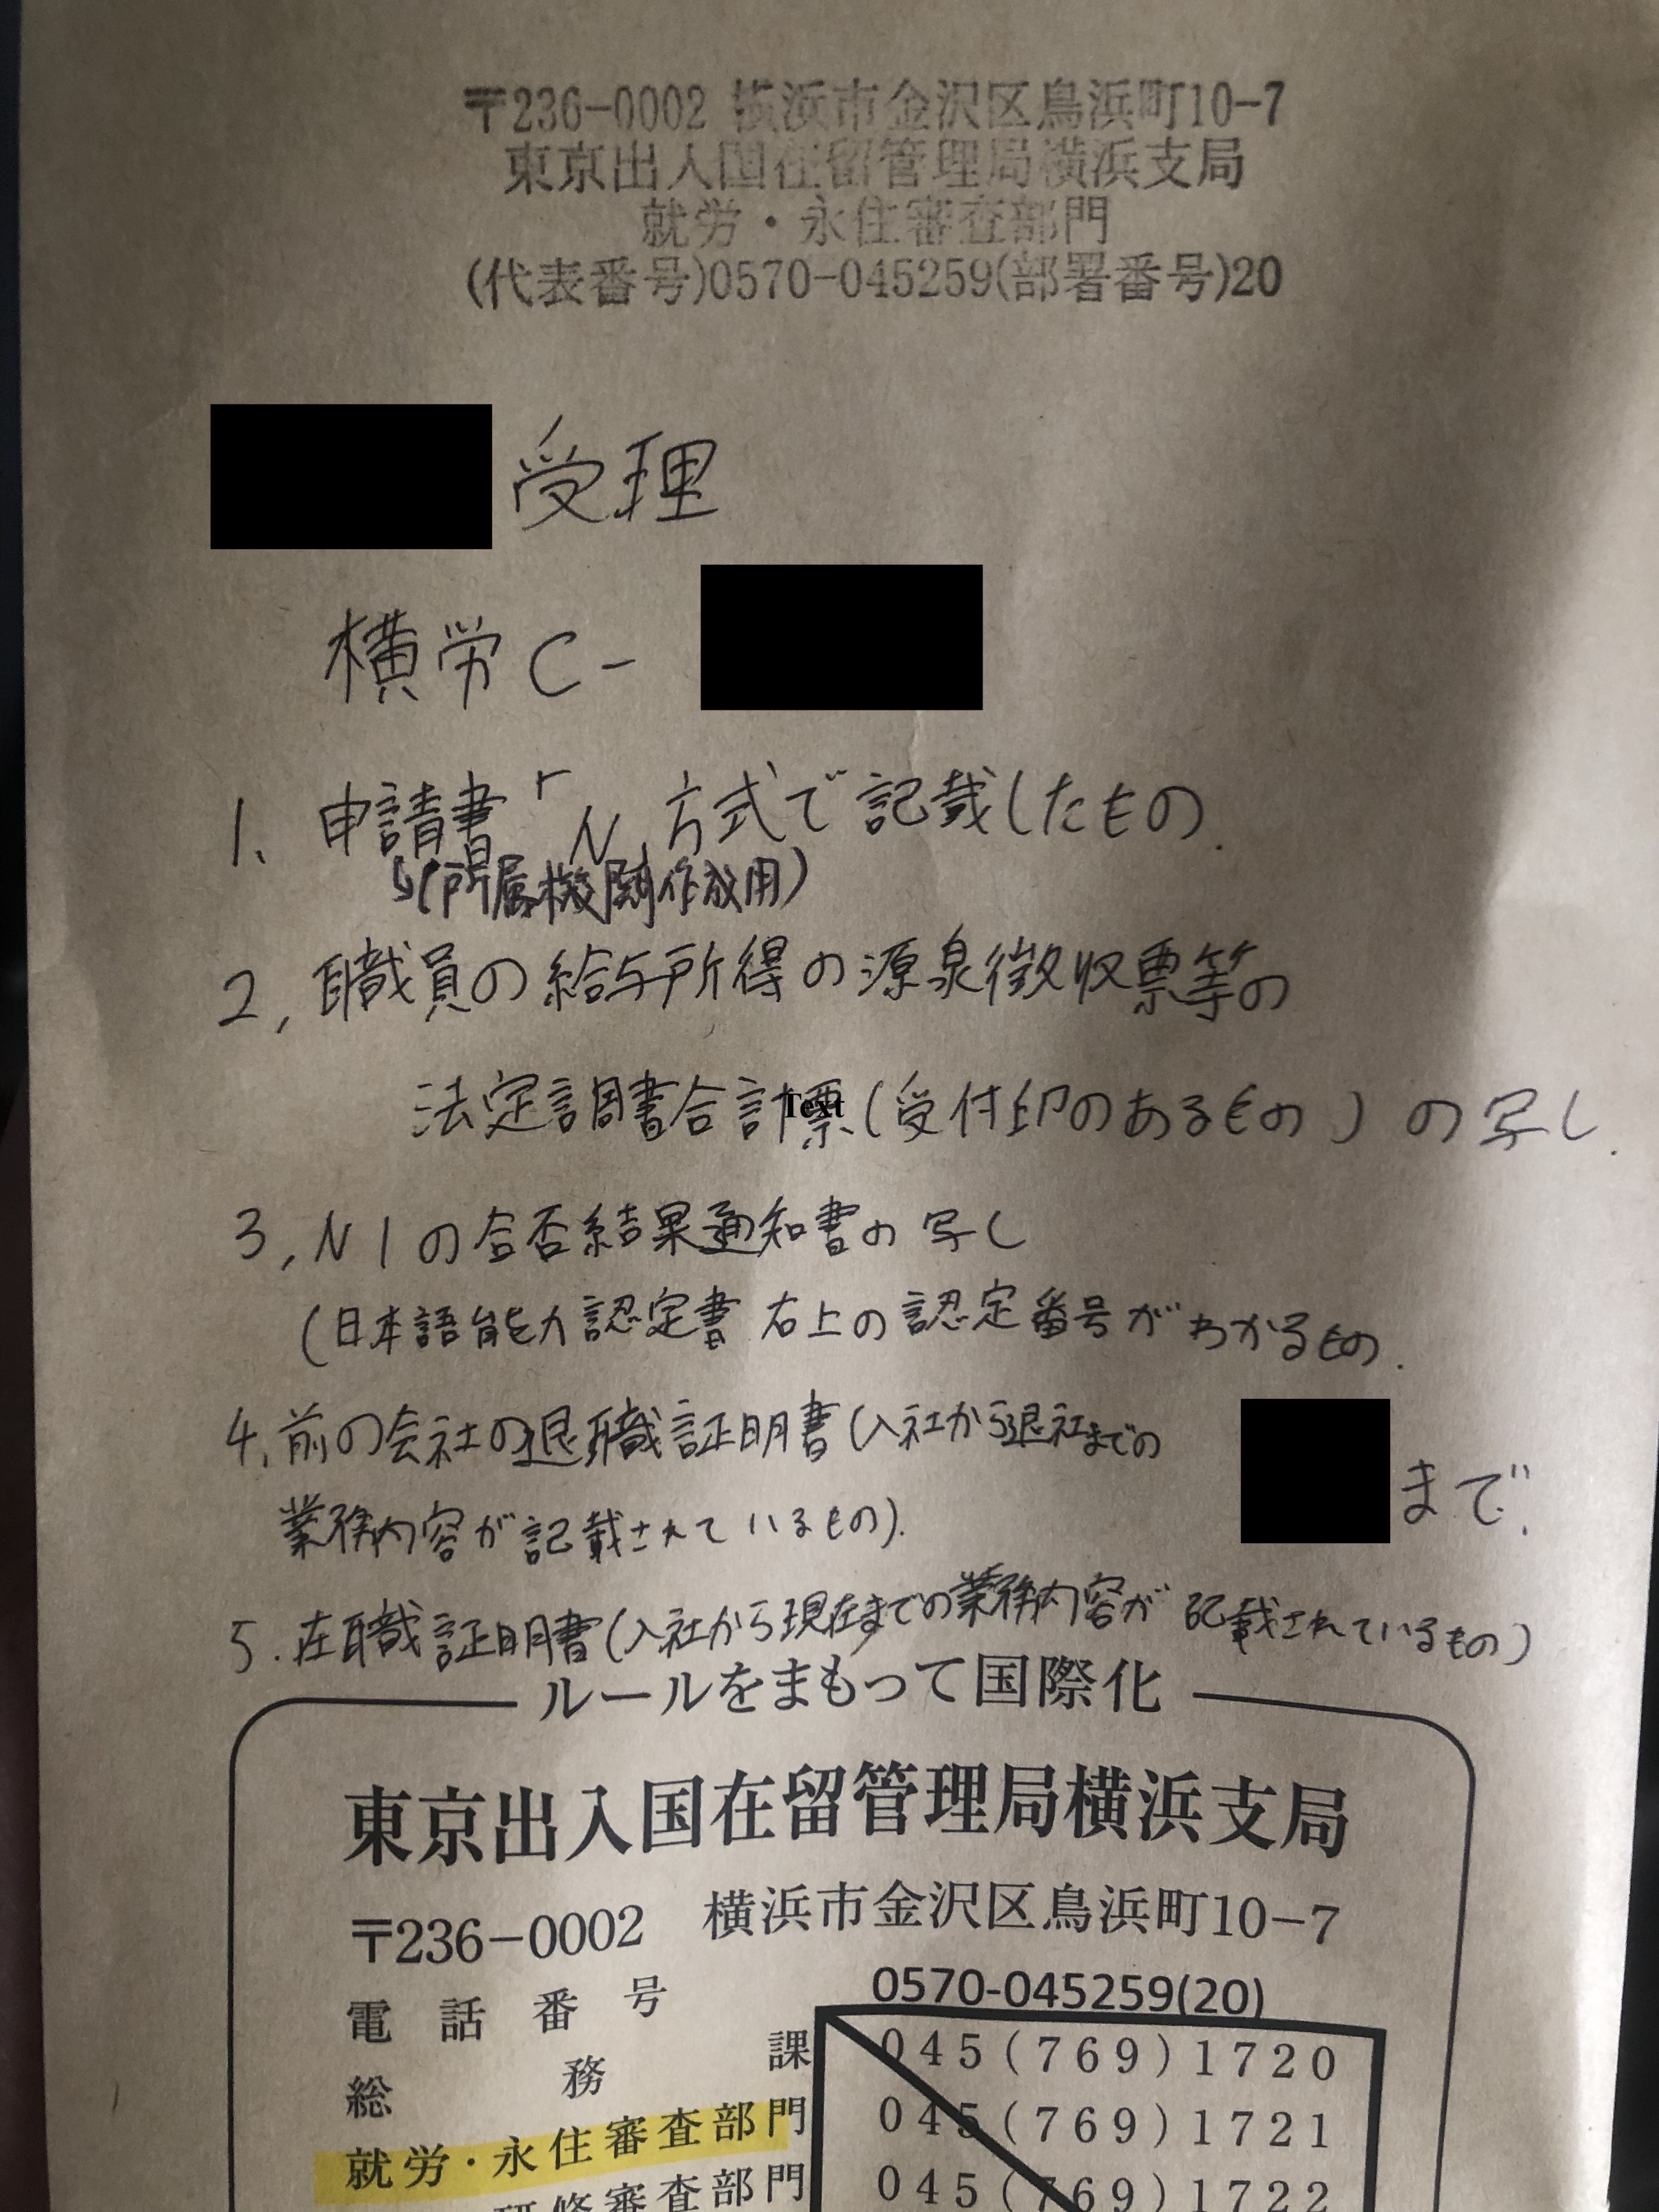 〒236-0002 横浜市金沢区鳥浜町10-7
東京出入国在留管理局横浜支局
就労・永住審査部門
(代表番号)0570-045259(部署番号)20
受理
横労C-
1、申請書「N」方式で記載したもの.
↳(所属機関作成用)
2,職員の給与所得の源泉徴収票等の
法定調書合計票(受付印のあるもの)の写し.
Text
3,N1の合否結果通知書の写し
(日本語能力認定書 右上の認定番号がわかるもの.
4,前の会社の退職証明書(入社から退社までの
業務内容が記載されているもの).
まで.
5.在職証明書(入社から現在までの業務内容が記載されているもの)
ルールをまもって国際化
東京出入国在留管理局横浜支局
〒236-0002 横浜市金沢区鳥浜町10-7
電話番号 0570-045259(20)
総務課 045(769)1720
就労・永住審査部門 045(769)1721
研修審査部門 045(769)1722